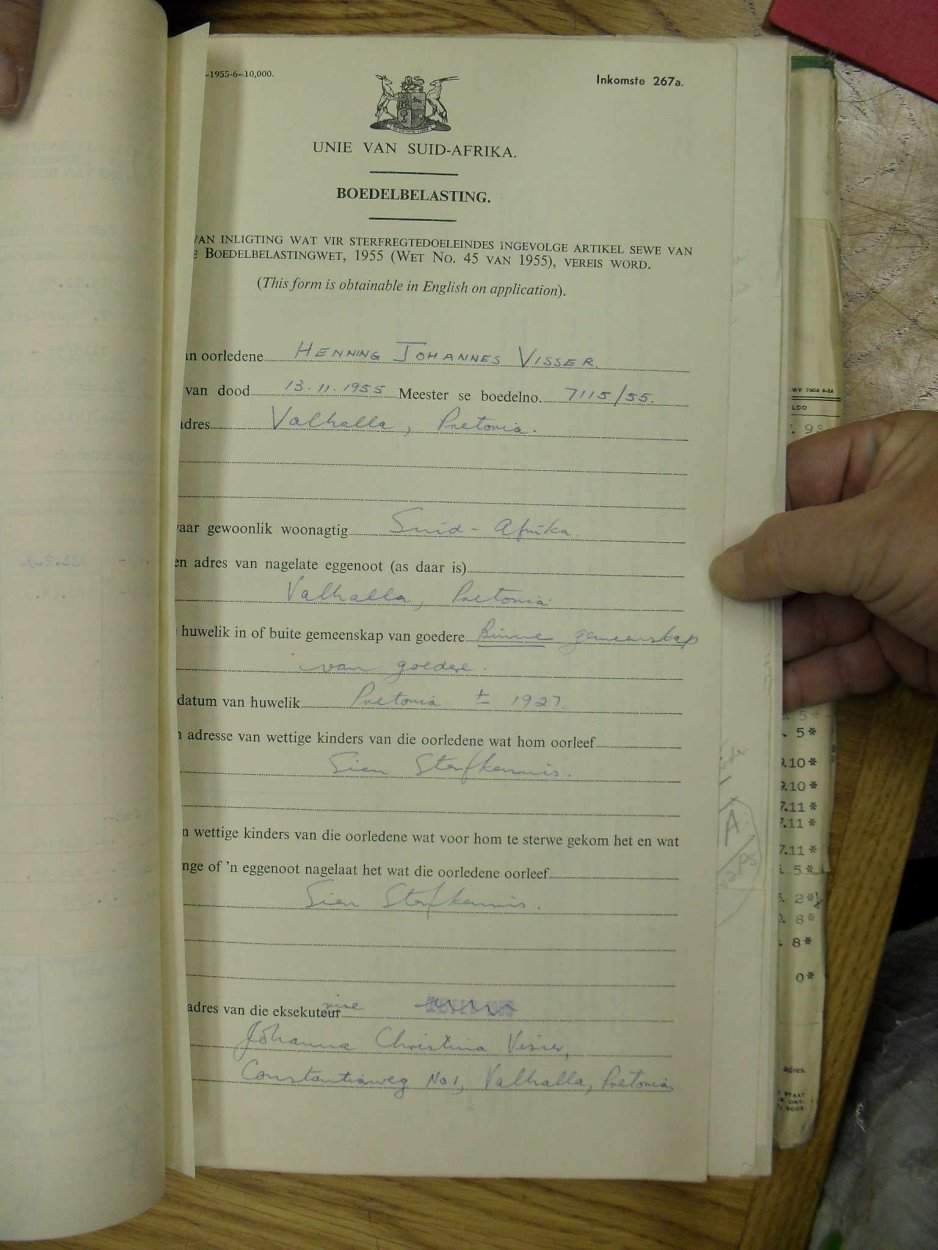 -1955-6-10,000.
Inkomste 267a.
UNIE VAN SUID-AFRIKA.
BOEDELBELASTING.
VAN INLIGTING WAT VIR STERFREGTEDOELEINDES INGEVOLGE ARTIKEL SEWE VAN
E BOEDELBELASTINGWET, 1955 (WET NO. 45 VAN 1955), VEREIS WORD.
(This form is obtainable in English on application).
n oorledene HENNING JOHANNES VISSER.
van dood 13.11.1955 Meester se boedelno. 7115/55.
dres Valhalla, Pretoria.
aar gewoonlik woonagtig Suid-Afrika.
en adres van nagelate eggenoot (as daar is)
Valhalla, Pretoria
huwelik in of buite gemeenskap van goedere Binne gemeenskap
van goedere.
datum van huwelik Pretoria ± 1927.
adresse van wettige kinders van die oorledene wat hom oorleef
Sien Sterfkennis.
n wettige kinders van die oorledene wat voor hom te sterwe gekom het en wat
nge of 'n eggenoot nagelaat het wat die oorledene oorleef
Sien Sterfkennis.
adres van die eksekuteur
Johanna Christina Visser,
Constantiaweg No 1, Valhalla, Pretoria.
WV 7504 8-54
LDO
. 95
5*
. 5*
9.10*
9.10*
7.11*
7.11*
7.11*
5*
2*
8*
. 8*
0*
A